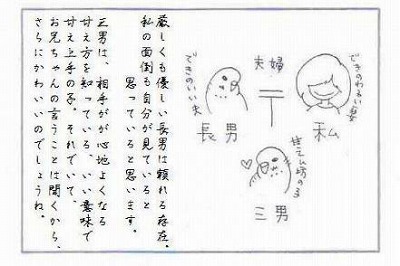 夫婦
できのわるい妻
私
できのいい夫
長男
甘えん坊の子
三男
厳しくも優しい長男は頼れる存在。
私の面倒も自分が見ていると
思っていると思います。
三男は、相手がが心地よくなる
甘え方を知っている、いい意味で
甘え上手の子。それでいて、
お兄ちゃんの言うことは聞くから、
さらにかわいいのでしょうね。